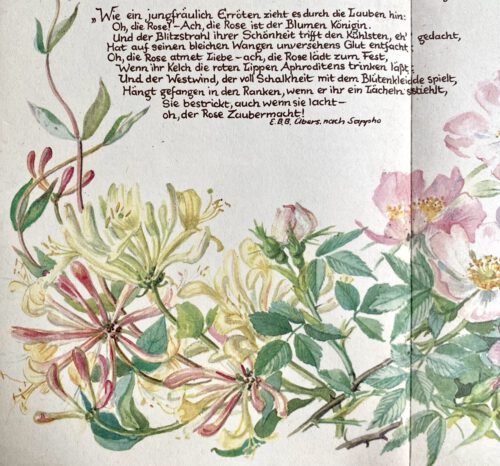 „Wie ein jungfräulich Erröten zieht es durch die Lauben hin:
Oh, die Rose! – Ach, die Rose ist der Blumen Königin.
Und der Blitzstrahl ihrer Schönheit trifft den Kühlsten, eh' gedacht,
Hat auf seinen bleichen Wangen unversehens Glut entfacht:
Oh, die Rose atmet Liebe – ach, die Rose lädt zum Fest,
Wenn ihr Kelch die roten Lippen Aphroditens trinken läßt;
Und der Westwind, der voll Schalkheit mit dem Blütenkleide spielt,
Hängt gefangen in den Ranken, wenn er ihr ein Lächeln stiehlt,
Sie bestrickt, auch wenn sie lacht –
oh, der Rose Zaubermacht!
E.B.B. Übers. nach Sappho